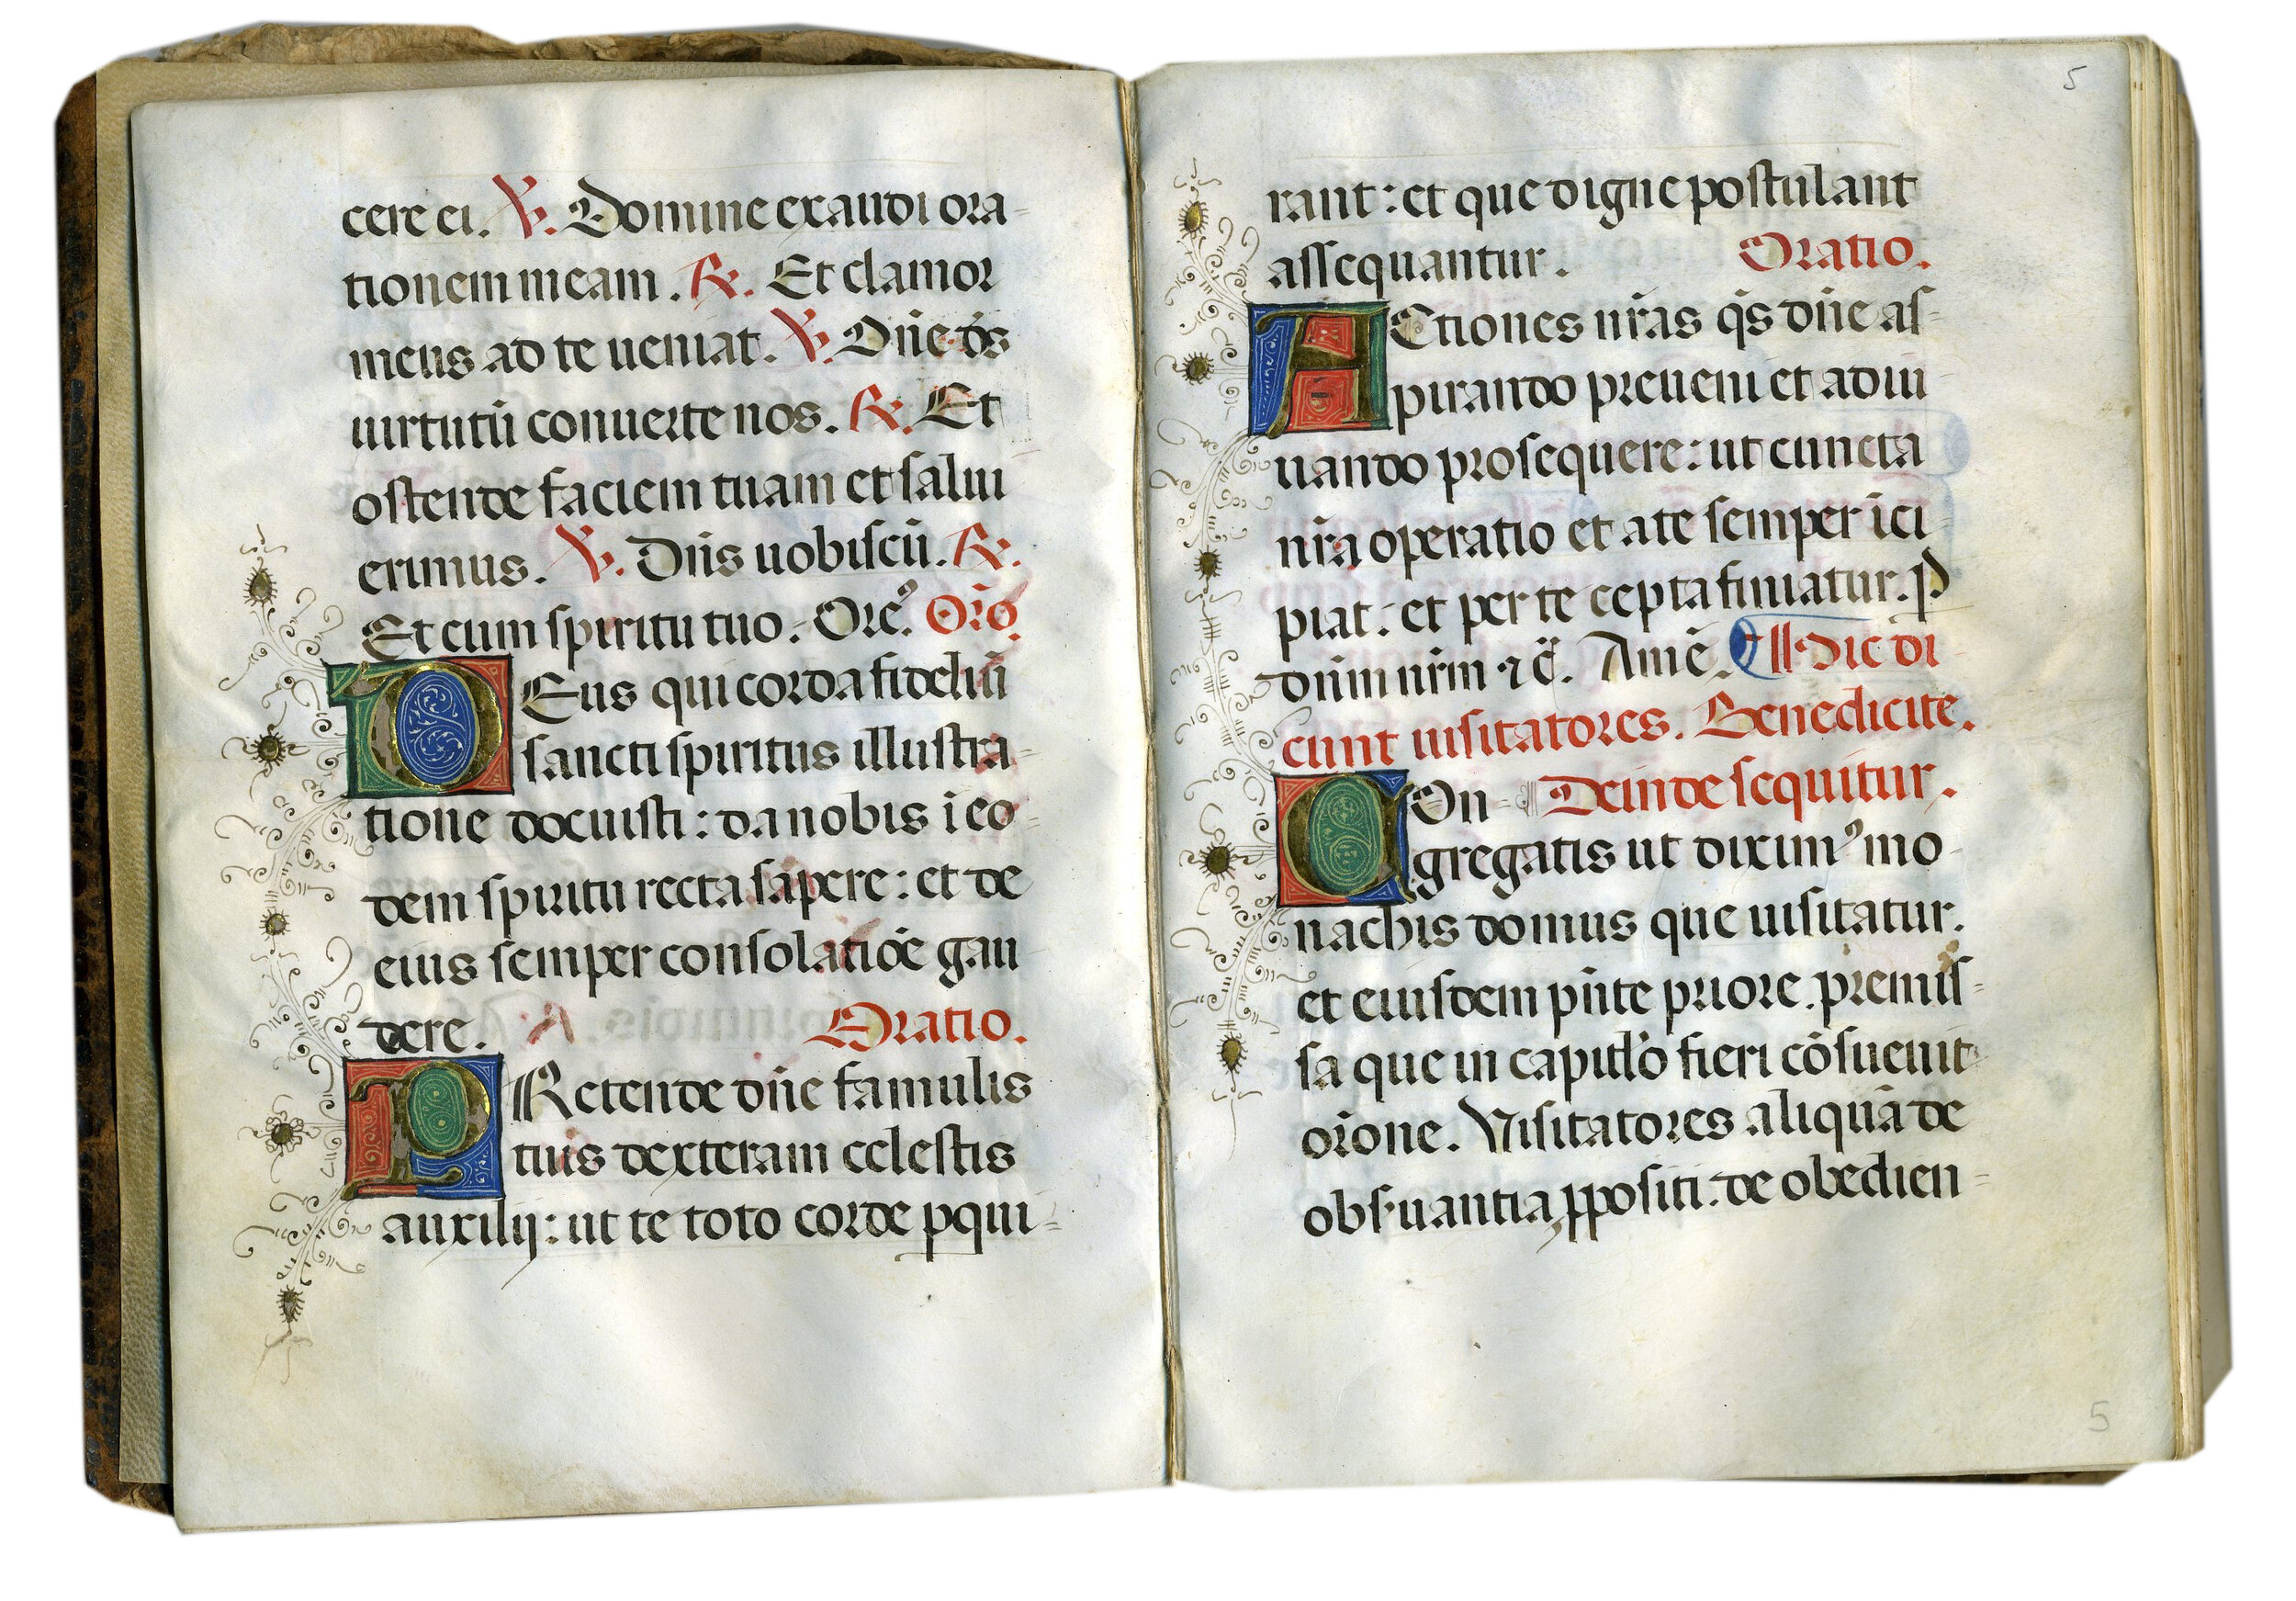 cere ei. ℣. Domine exaudi ora-
tionem meam. ℟. Et clamor
meus ad te ueniat. ℣. Dñe ds̄
uirtutū conuerte nos. ℟. Et
ostende faciem tuam et salui
erimus. ℣. Dñs uobiscū. ℟.
Et cum spiritu tuo. Orēꝰ. Orō.
DEus qui corda fideliū
sancti spiritus illustra-
tione docuisti: da nobis ī eo-
dem spiritu recta sapere: et de
eius semper consolatiōe gau-
dere. Oratio.
PRetende dñe famulis
tuis dexteram celestis
auxilij: ut te toto corde ꝑqui-
5
rant: et que digne postulant
assequantur. Oratio.
ACtiones nr̄as qs̄ dñe as-
pirando preueni et adiu-
uando prosequere: ut cuncta
nr̄a operatio et a te semper īci-
piat: et per te cepta finiatur. P
dñum nr̄m ⁊ c̄. Amē. Dic di-
cunt uisitatores. Benedicite.
COn- Deinde sequitur.
gregatis ut diximꝰ mo-
nachis domus que uisitatur.
et eiusdem pñte priore. premis-
sa que in capitl̄o fieri cōsueuit
orōne. Visitatores aliquā de
obs̄uantia ꝓpositi: de obedien-
5